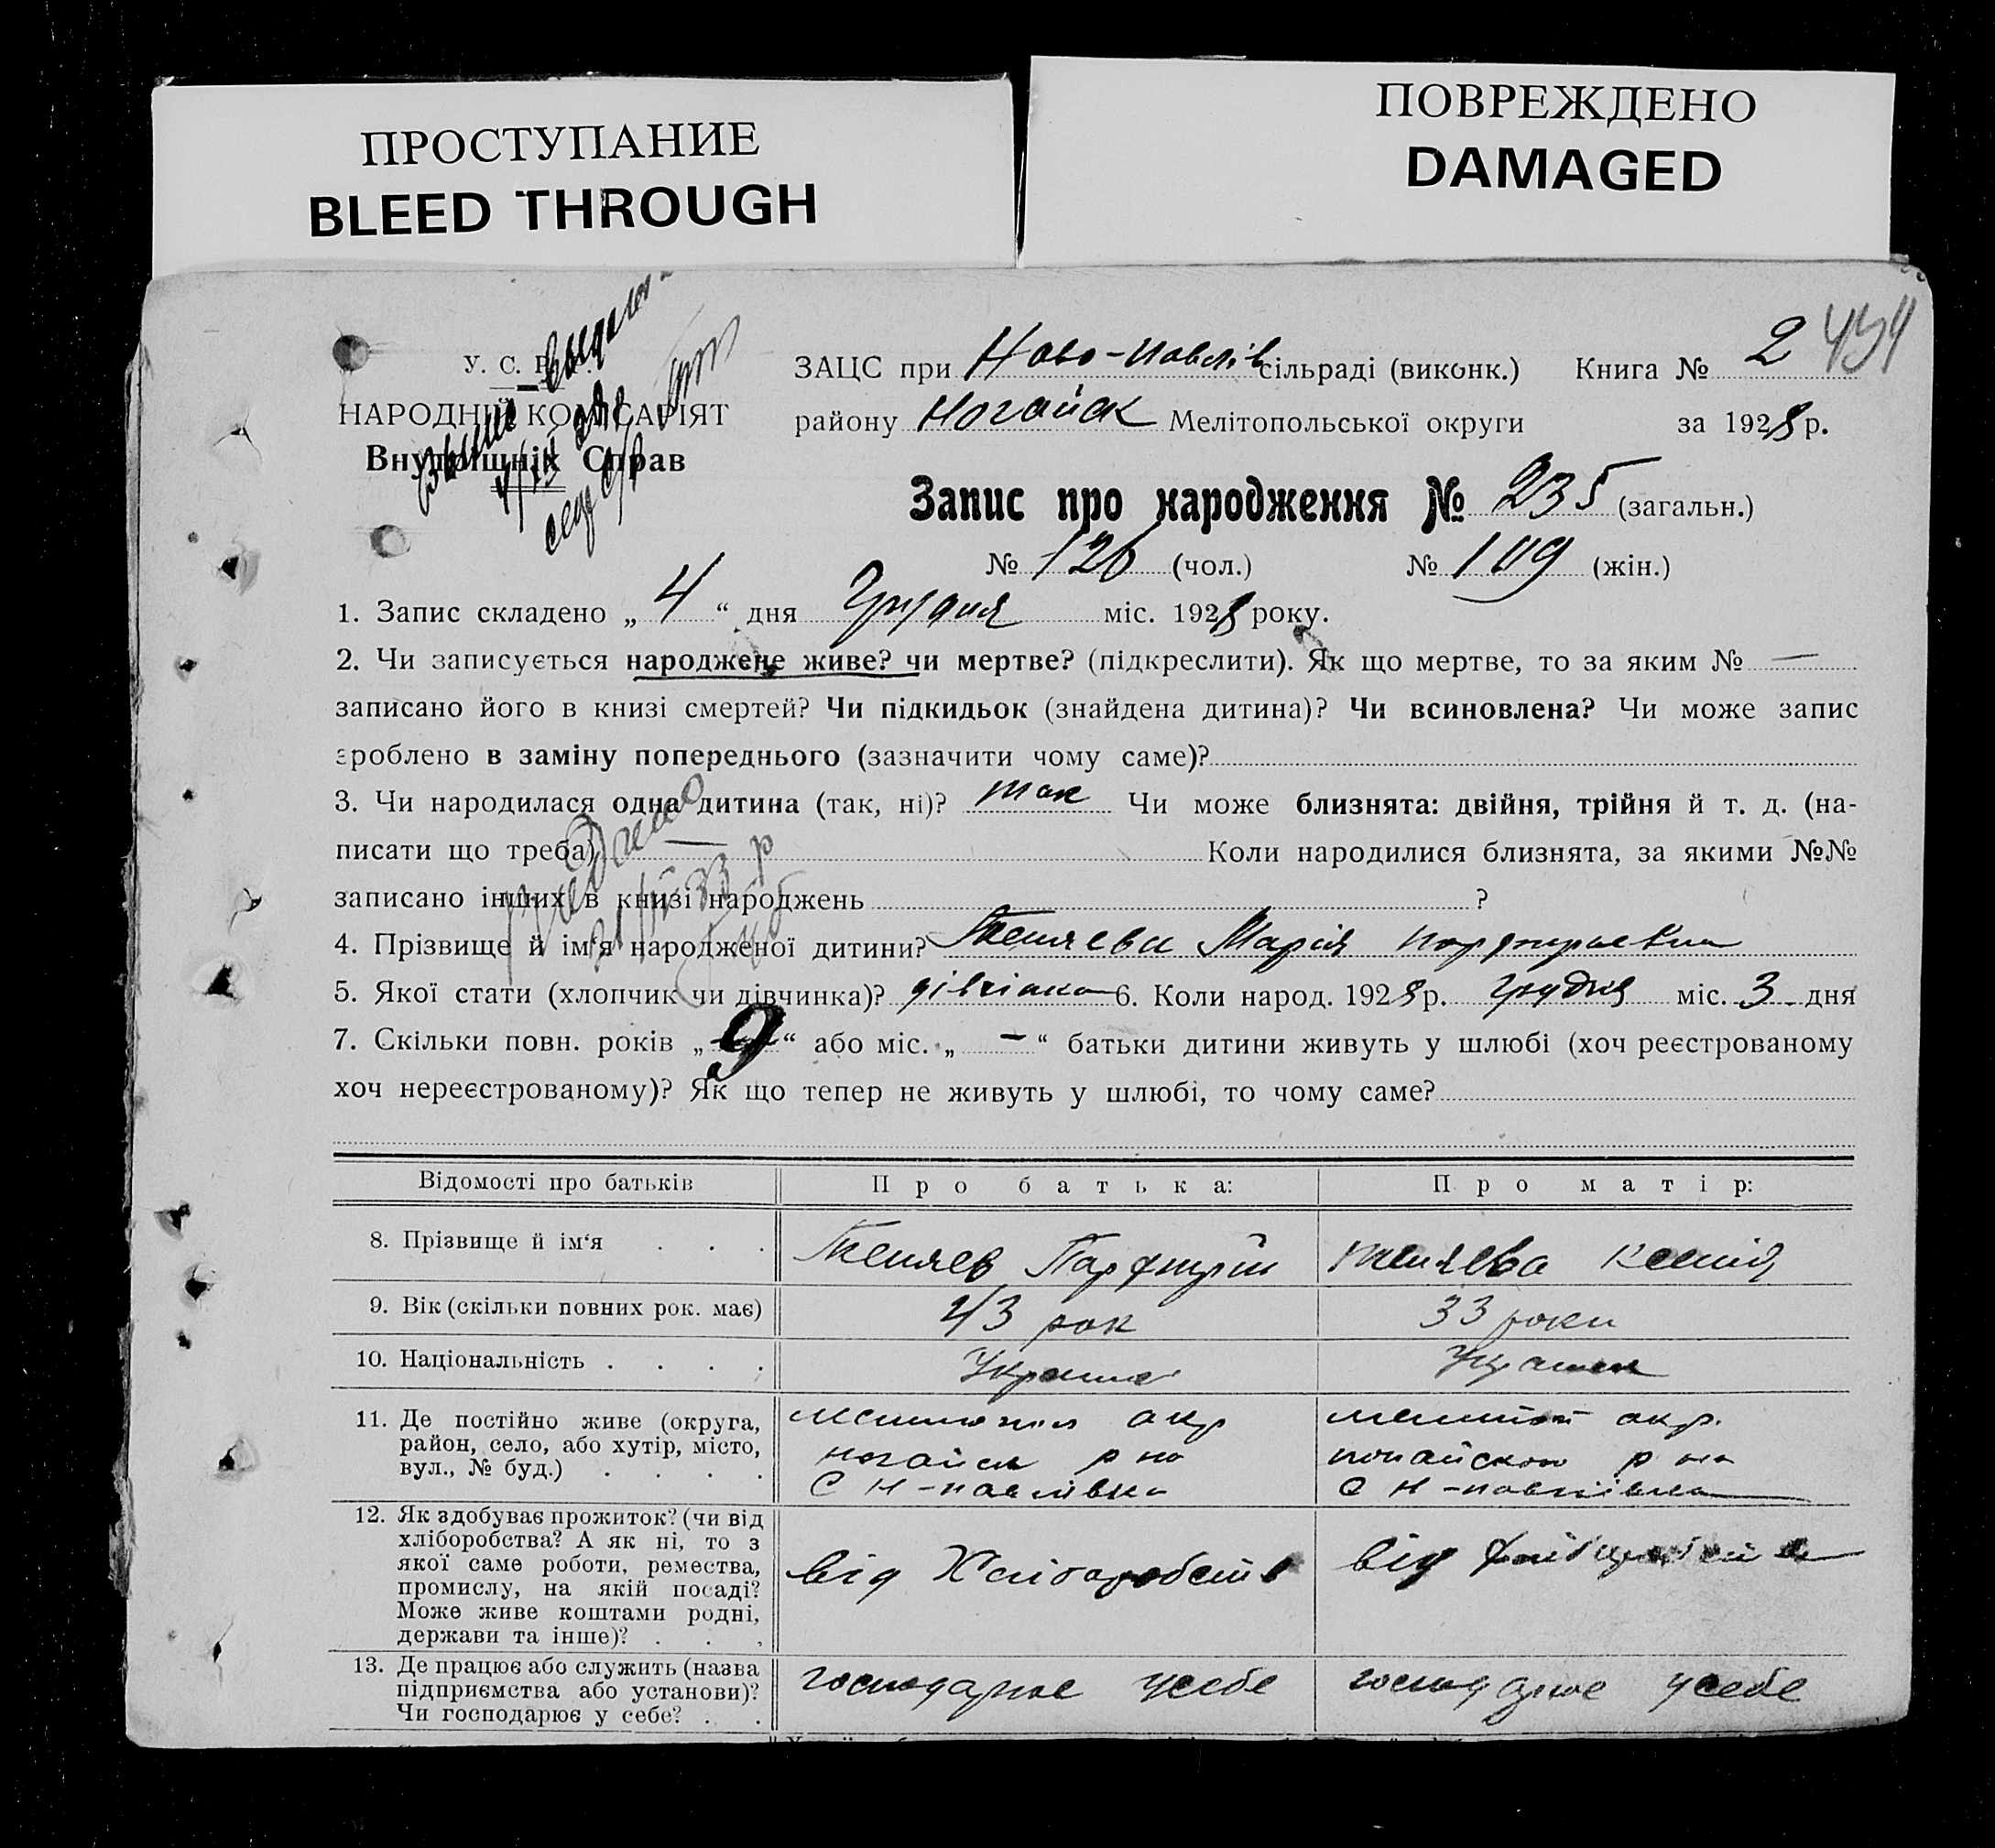 ПРОСТУПАНИЕ
BLEED THROUGH
ПОВРЕЖДЕНО
DAMAGED
У. С. Р. Р.
НАРОДНІЙ КОМІСАРІЯТ
Внутрішніх Справ
ЗАЦС при Ново-Павлів сільраді (виконк.) Книга № 2
району Ногайск Мелітопольської округи за 1928 р.
Запис про народження № 235 (загальн.)
№ 126 (чол.) № 109 (жін.)
1. Запис складено „ 4 “ дня Грудня міс. 1928 року.
2. Чи записується народжене живе? чи мертве? (підкреслити). Як що мертве, то за яким № —
записано його в книзі смертей? Чи підкидьок (знайдена дитина)? Чи всиновлена? Чи може запис
зроблено в заміну попереднього (зазначити чому саме)?
3. Чи народилася одна дитина (так, ні)? так Чи може близнята: двійня, трійня й т. д. (на-
писати що треба) — Коли народилися близнята, за якими №№
записано інших в книзі народжень ?
4. Прізвище й ім‘я народженої дитини? Марія
5. Якої стати (хлопчик чи дівчинка)? дівчинка 6. Коли народ. 1928 р. грудня міс. 3 дня
7. Скільки повн. років „ 9 “ або міс. „ — “ батьки дитини живуть у шлюбі (хоч реєстрованому
хоч нереєстрованому)? Як що тепер не живуть у шлюбі, то чому саме?
Відомості про батьків
Про батька:
Про матір:
8. Прізвище й ім‘я . . .
Парфирій
Ксенія
9. Вік (скільки повних рок. має)
43 рок
33 роки
10. Національність . . . .
11. Де постійно живе (округа,
район, село, або хутір, місто,
вул., № буд.) . . . .
окр
р на
С Н-павлівка
окр.
р на
С Н-павлівка
12. Як здобуває прожиток? (чи від
хліборобства? А як ні, то з
якої саме роботи, ремества,
промислу, на якій посаді?
Може живе коштами родні,
держави та інше)? . . .
від Хліборобств
від
13. Де працює або служить (назва
підприємства або установи)?
Чи господарює у себе? . .
господарює усебе
господарює усебе